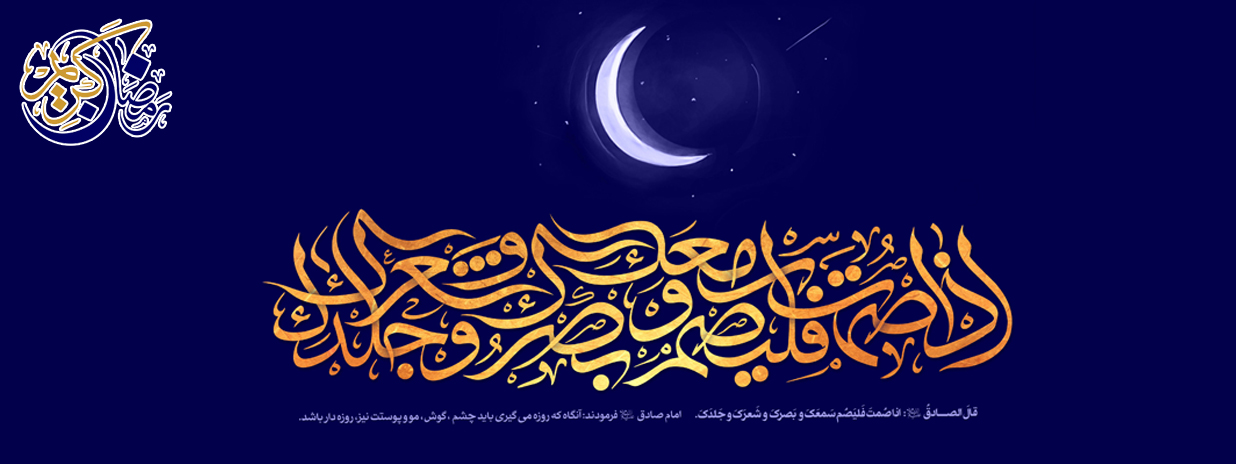 رمضان کریم
اذا صمت فلیصم سمعک و بصرک و شعرک و جلدک
قالَ الصـــادقُ : اذا صُمتَ فَلیَصُم سَمعَکَ و بَصرکَ و شَعرَکَ و جَلدَکَ. امام صادق فرمودند: آنگاه که روزه می گیری باید چشم ، گوش ، مو و پوستت نیز، روزه دار باشد.